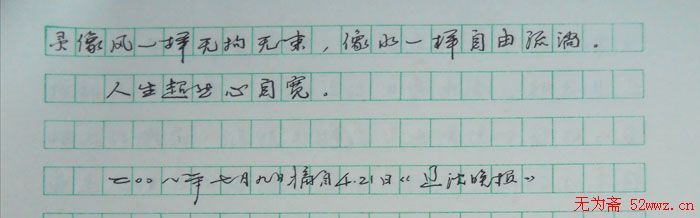 灵像风一样无拘无束，像水一样自由流淌。
人生超然心自宽。
二00八年七月九日摘自4.21日《辽沈晚报》
无为斋 52wwz.cn